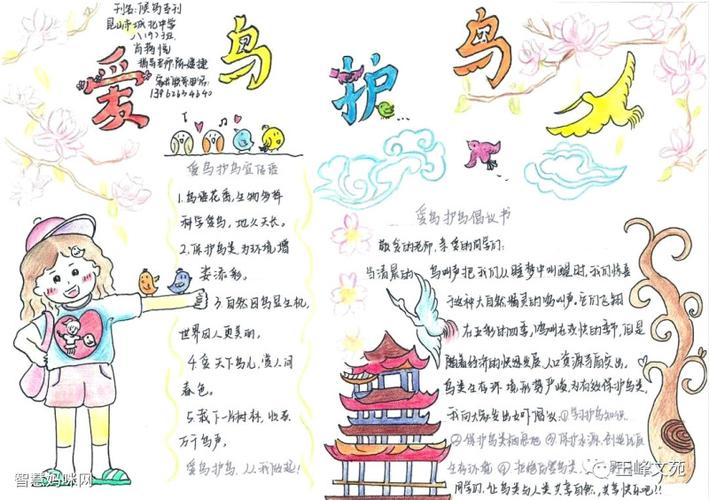 刊名:候鸟专刊
昆山市城北中学
八(9)班
家长联系电话:
爱鸟护鸟
爱鸟护鸟宣传语
1.鸟语花香,生物多样
科学爱鸟,地久天长。
2.保护鸟类,为环境增
姿添彩。
3.自然因鸟显生机,
世界因人更美丽。
4.爱天下鸟儿,像人间
春色。
5.栽下一片树林,收获
万千鸟声。
爱鸟护鸟,从我做起!
爱鸟护鸟倡议书
敬爱的老师,亲爱的同学们:
当清晨的鸟叫声把我们从睡梦中叫醒时,我们惊喜
于这种大自然精灵的鸣叫声。它们飞翔
在五彩的四季,鸣叫在欢快的季节,但是
随着经济的快速发展,人口资源矛盾突出,
鸟类生存环境形势严峻,为有效保护鸟类,
我向大家发出如下倡议:①学习护鸟知识
②保护鸟类栖息地③保护水源,创造优良
生存环境④拒绝
同学们,让鸟类与人类共享自然,共享快乐吧!!
智慧妈咪网
玉峰文苑